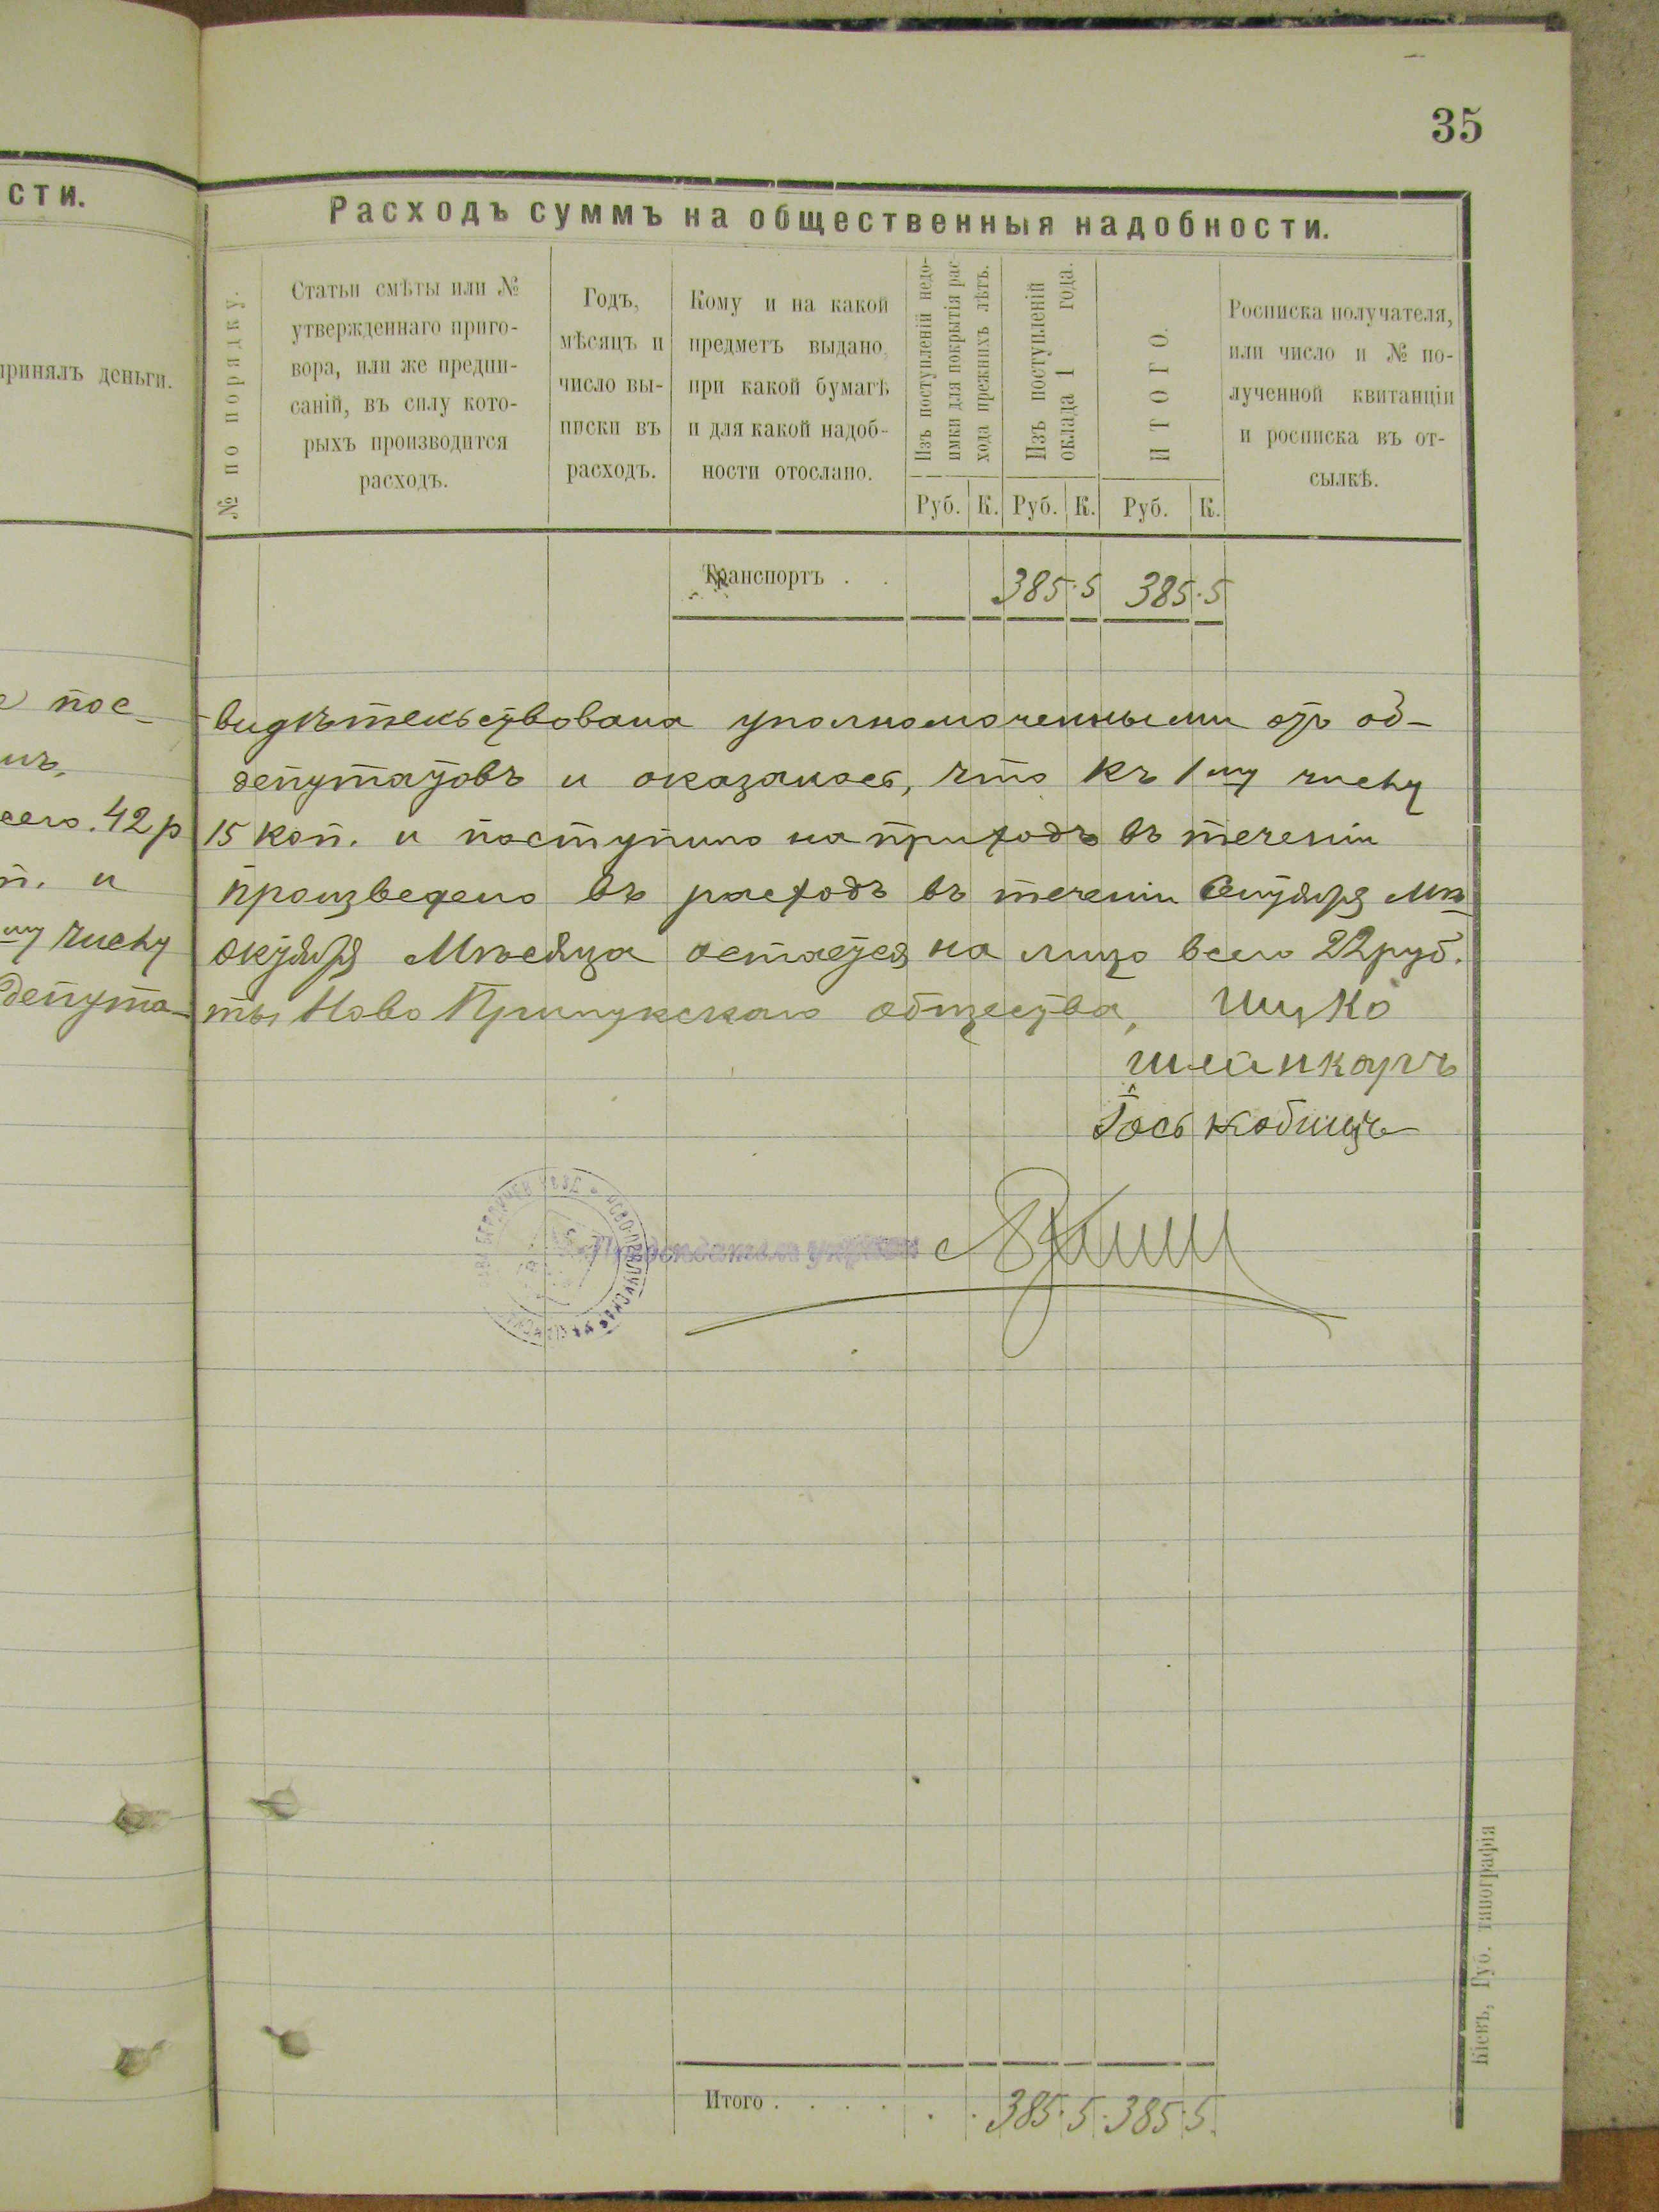 35
сти.
принялъ деньги.
е пос-
сего. 42 р
п. и
му числу
депута-
Расходъ суммъ на общественныя надобности.
№ по порядку.
Статьи смѣты или №
утвержденнаго приго-
вора, или же предпи-
саній, въ силу кото-
рыхъ производится
расходъ.
Годъ,
мѣсяцъ и
число вы-
писки въ
расходъ.
Кому и на какой
предметъ выдано,
при какой бумагѣ
и для какой надоб-
ности отослано.
Изъ поступленій недо-
имки для покрытія рас-
хода прежнихъ лѣтъ.
Изъ поступленій
оклада 1 года.
ИТОГО.
Росписка получателя,
или число и № по-
лученной квитанціи
и росписка въ от-
сылкѣ.
Руб. К. Руб. К. Руб. К.
Транспортъ . . 385 . 5 385 . 5
видѣтельствована уполномоченными отъ об-
депутатовъ и оказалось, что къ 1му числу
15 коп. и поступило на приходъ въ теченіи
произведено въ расходъ въ теченіи Сентября Мѣ-
октября Мѣсяца остается на лицо всего 22 руб.
ты Ново Прилукскаго общества,
Итого . . . . . . 385 . 5 . 385 . 5.
Кіевъ, Губ. типографія